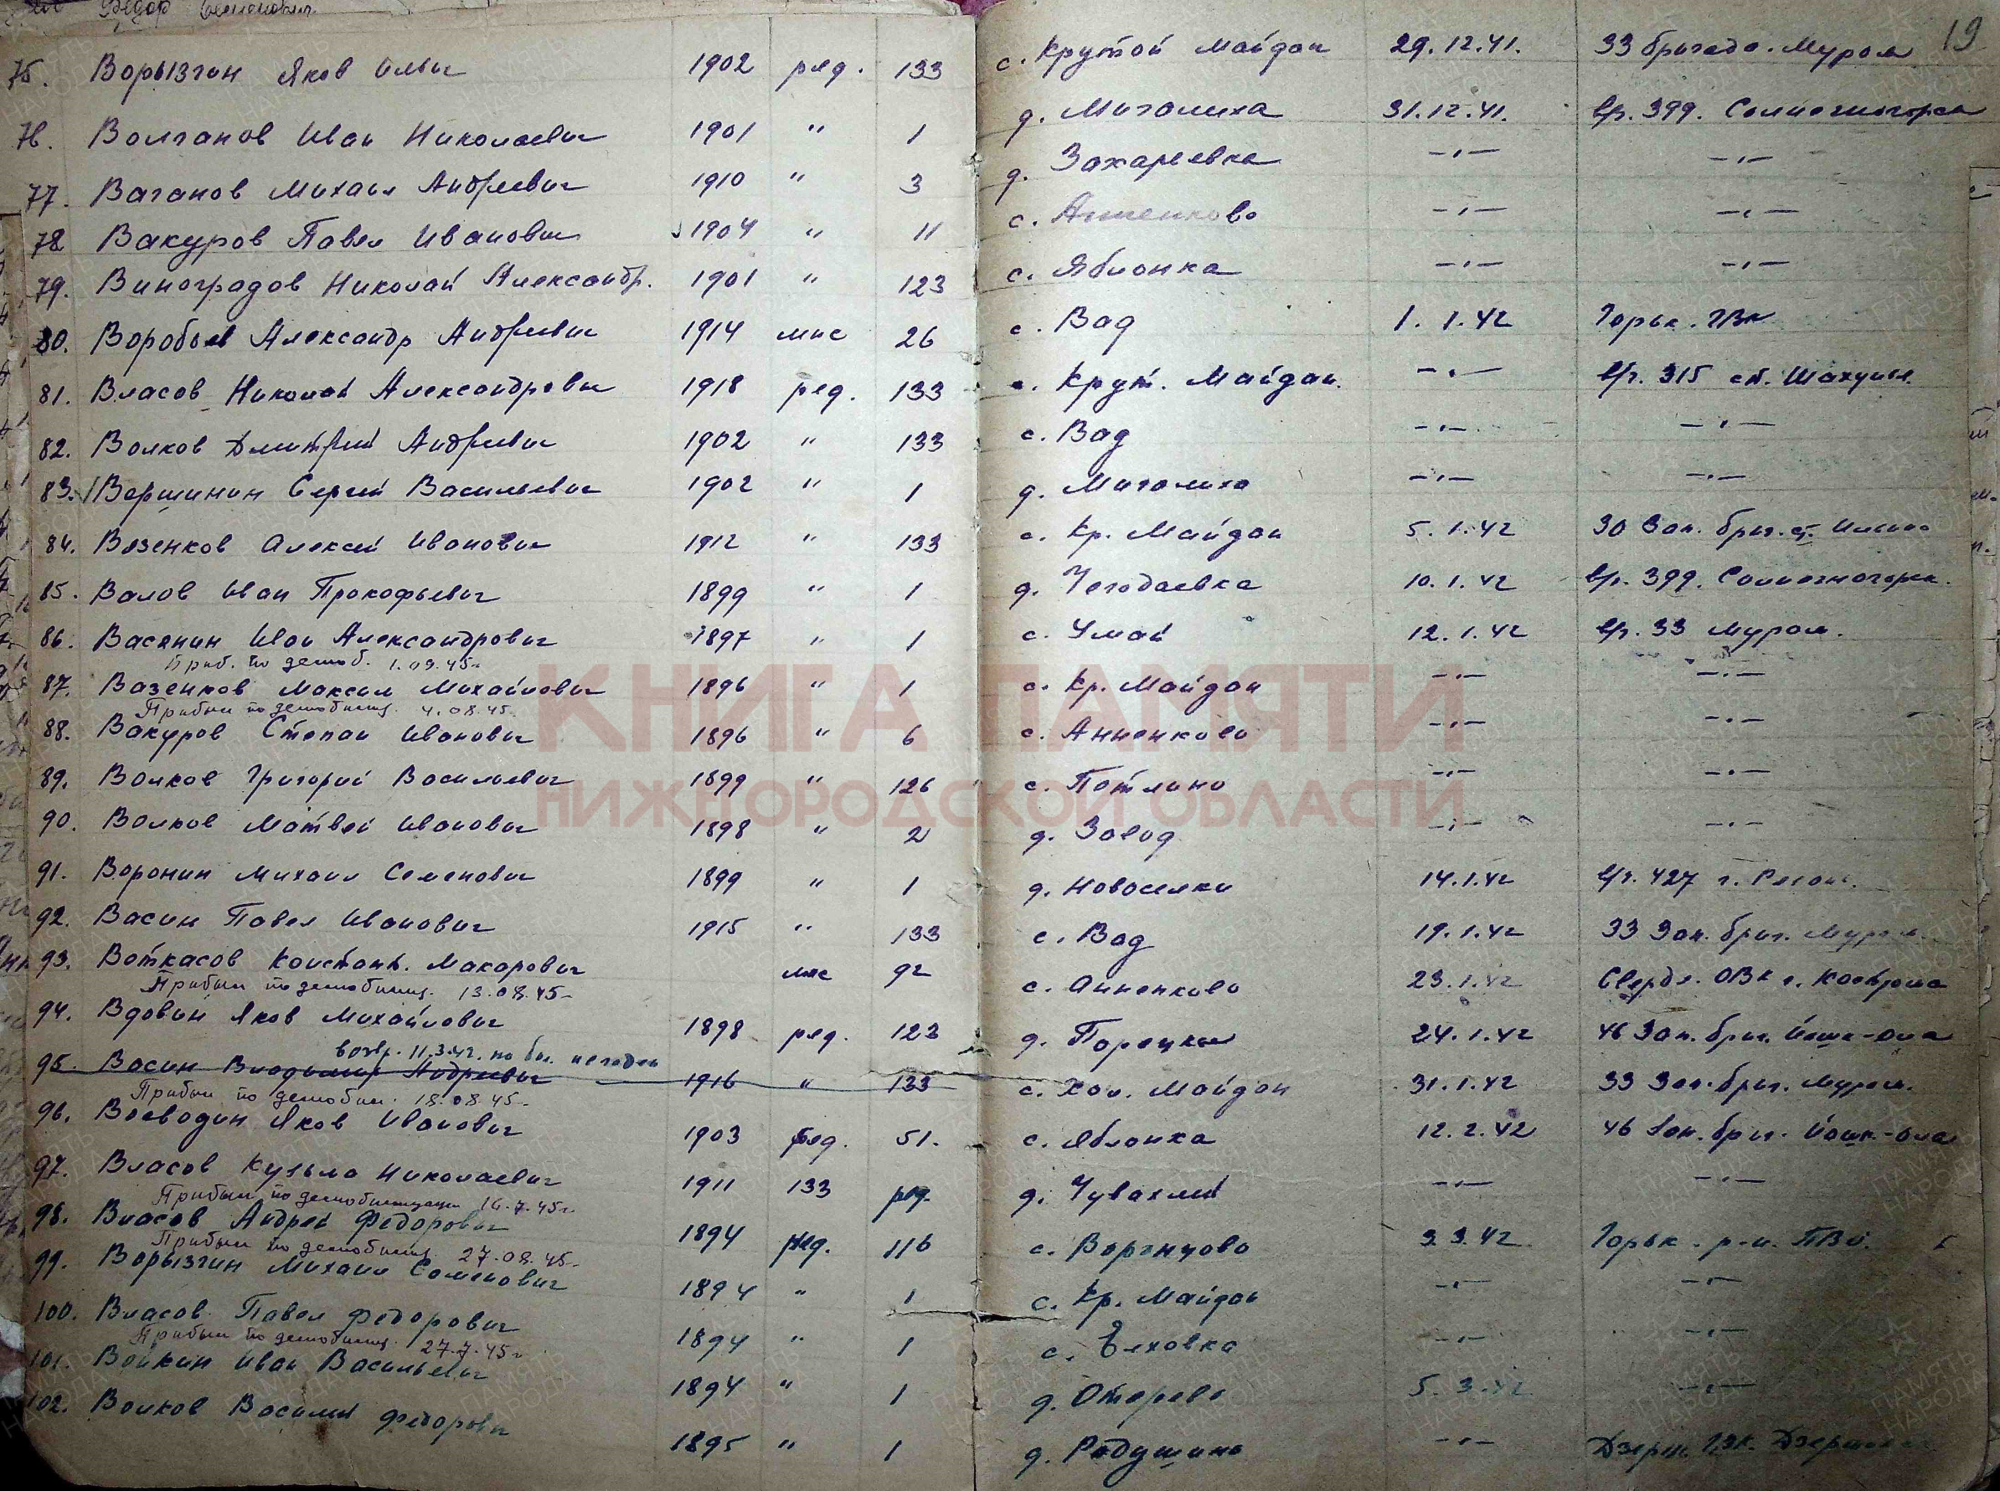 19
75. Ворызгин Яков Ильич 1902 ряд. 133 с. Крутой Майдан 29.12.41. 33 бригада. Муром
76. Волганов Иван Николаевич 1901 " 1 д. Миголиха 31.12.41. в/ч. 399. Солнечногорск
77. Ваганов Михаил Андреевич 1910 " 3 д. Захаревка -"- -"-
78 Вакуров Павел Иванович 1904 " 11 с. Анненково -"- -"-
79. Виноградов Николай Александр. 1901 " 123 с. Яблонка -"- -"-
80. Воробьев Александр Андреевич 1914 млс 26 с. Вад 1.1.42 Горьк. ГВК
81. Власов Николай Александрович 1918 ряд. 133 с. Крут. Майдан. -"- в/ч. 315 ст. Шахунья
82. Волков Дмитрий Андреевич 1902 " 133 с. Вад -"- -"-
83. Вершинин Сергей Васильевич 1902 " 1 д. Миголиха -"- -"-
84. Везенков Алексей Иванович 1912 " 133 с. Кр. Майдан 5.1.42 30 Зап. бриг. ст. Ильино
85. Валов Иван Прокофьевич 1899 " 1 д. Чегодаевка 10.1.42 в/ч. 399. Солнечногорск.
86. Васянин Иван Александрович 1897 " 1 с. Умай 12.1.42 в/ч. 33 Муром.
Приб. по демоб. 1.09.45г
87. Вазенков Максим Михайлович 1896 " 1 с. Кр. Майдан -"- -"-
Прибыл по демобилиз. 4.08.45
88. Вакуров Степан Иванович 1896 " 6 с. Анненково -"- -"-
89. Волков Григорий Васильевич 1899 " 126 с. Потлино -"- -"-
90. Волков Матвей Иванович 1898 " 2 д. Завод -"- -"-
91. Воронин Михаил Семенович 1899 " 1 д. Новоселки 14.1.42 в/ч. 427 г.
92. Васин Павел Иванович 1915 " 133 с. Вад 19.1.42 33 Зап. бриг. Муром
93. Воткасов Констант. Макарович млс 92 с. Анненково 23.1.42 Свердл. ОВК г. Кострома
Прибыл по демобилиз. 13.08.45
94. Вдовин Яков Михайлович 1898 ряд. 123 д. Порецкое 24.1.42 46 Зап. бриг. Йошк-Ола
возвр. 11.3.42. по бол. негоден
95. Васин Владимир Андреевич 1916 " 133 с. Хол. Майдан 31.1.42 33 Зап. бриг. Муром.
Прибыл по демобил. 18.08.45
96. Воеводин Яков Иванович 1903 ряд. 51. с. Яблонка 12.2.42 46 Зап. бриг. Йошк-Ола
97. Власов Кузьма Николаевич 1911 133 ряд. д. Чувахлей -"- -"-
Прибыл по демобилизации 16.7.45г
98. Власов Андрей Федорович 1894 ряд. 116 с. Воргнцово 3.3.42 Горьк. р-н. ПВО.
Прибыл по демобилиз. 27.08.45
99. Ворызгин Михаил Семенович 1894 " 1 с. Кр. Майдан -"- -"-
100. Власов Павел Федорович 1894 " 1 с. Елховка -"- -"-
Прибыл по демобилиз. 27.7.45г
101. Войкин Иван Васильевич 1894 " 1 д. Отерево 5.3.42 -"-
102. Волков Василий Федорович 1895 " 1 д. Радушино -"- Дзерж. ГВК. Дзержинск
КНИГА ПАМЯТИ
НИЖЕГОРОДСКОЙ ОБЛАСТИ